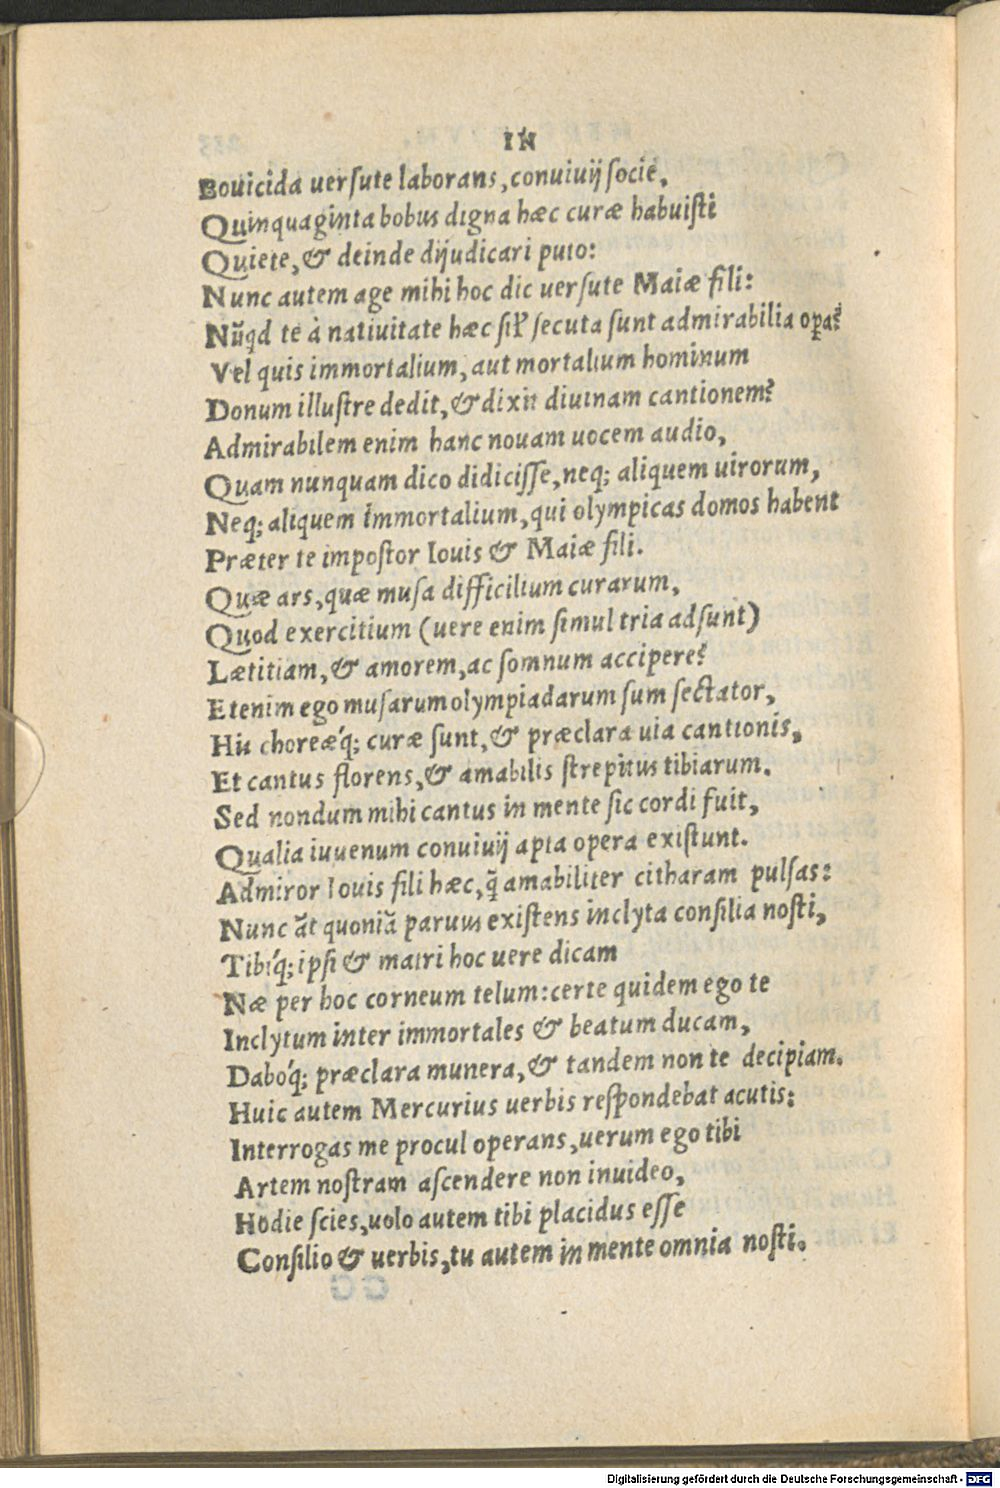 IN
Bouicida uersute laborans, conuiuij socie,
Quinquaginta bobus digna hæc curæ habuisti
Quiete, & deinde dijudicari puto:
Nunc autem age mihi hoc dic uersute Maiæ fili:
Nũqd te à natiuitate hæc sił secuta sunt admirabilia opa?
Vel quis immortalium, aut mortalium hominum
Donum illustre dedit, & dixit diuinam cantionem?
Admirabilem enim hanc nouam uocem audio,
Quam nunquam dico didicisse, neq; aliquem uirorum,
Neq; aliquem immortalium, qui olympicas domos habent
Præter te impostor Iouis & Maiæ fili.
Quæ ars, quæ musa difficilium curarum,
Quod exercitium (uere enim simul tria adsunt)
Lætitiam, & amorem, ac somnum accipere?
Etenim ego musarum olympiadarum sum sectator,
His choreæq́; curæ sunt, & præclara uia cantionis,
Et cantus florens, & amabilis strepitus tibiarum.
Sed nondum mihi cantus in mente sic cordi fuit,
Qualia iuuenum conuiuij apta opera existunt.
Admiror Iouis fili hæc, q̃ amabiliter citharam pulsas:
Nunc ãt quoniã paruus existens inclyta consilia nosti,
Tibiq́; ipsi & matri hoc uere dicam
Næ per hoc corneum telum: certe quidem ego te
Inclytum inter immortales & beatum ducam,
Daboq́; præclara munera, & tandem non te decipiam.
Huic autem Mercurius uerbis respondebat acutis:
Interrogas me procul operans, uerum ego tibi
Artem nostram ascendere non inuideo,
Hodie scies, uolo autem tibi placidus esse
Consilio & uerbis, tu autem in mente omnia nosti.
Digitalisierung gefördert durch die Deutsche Forschungsgemeinschaft - DFG